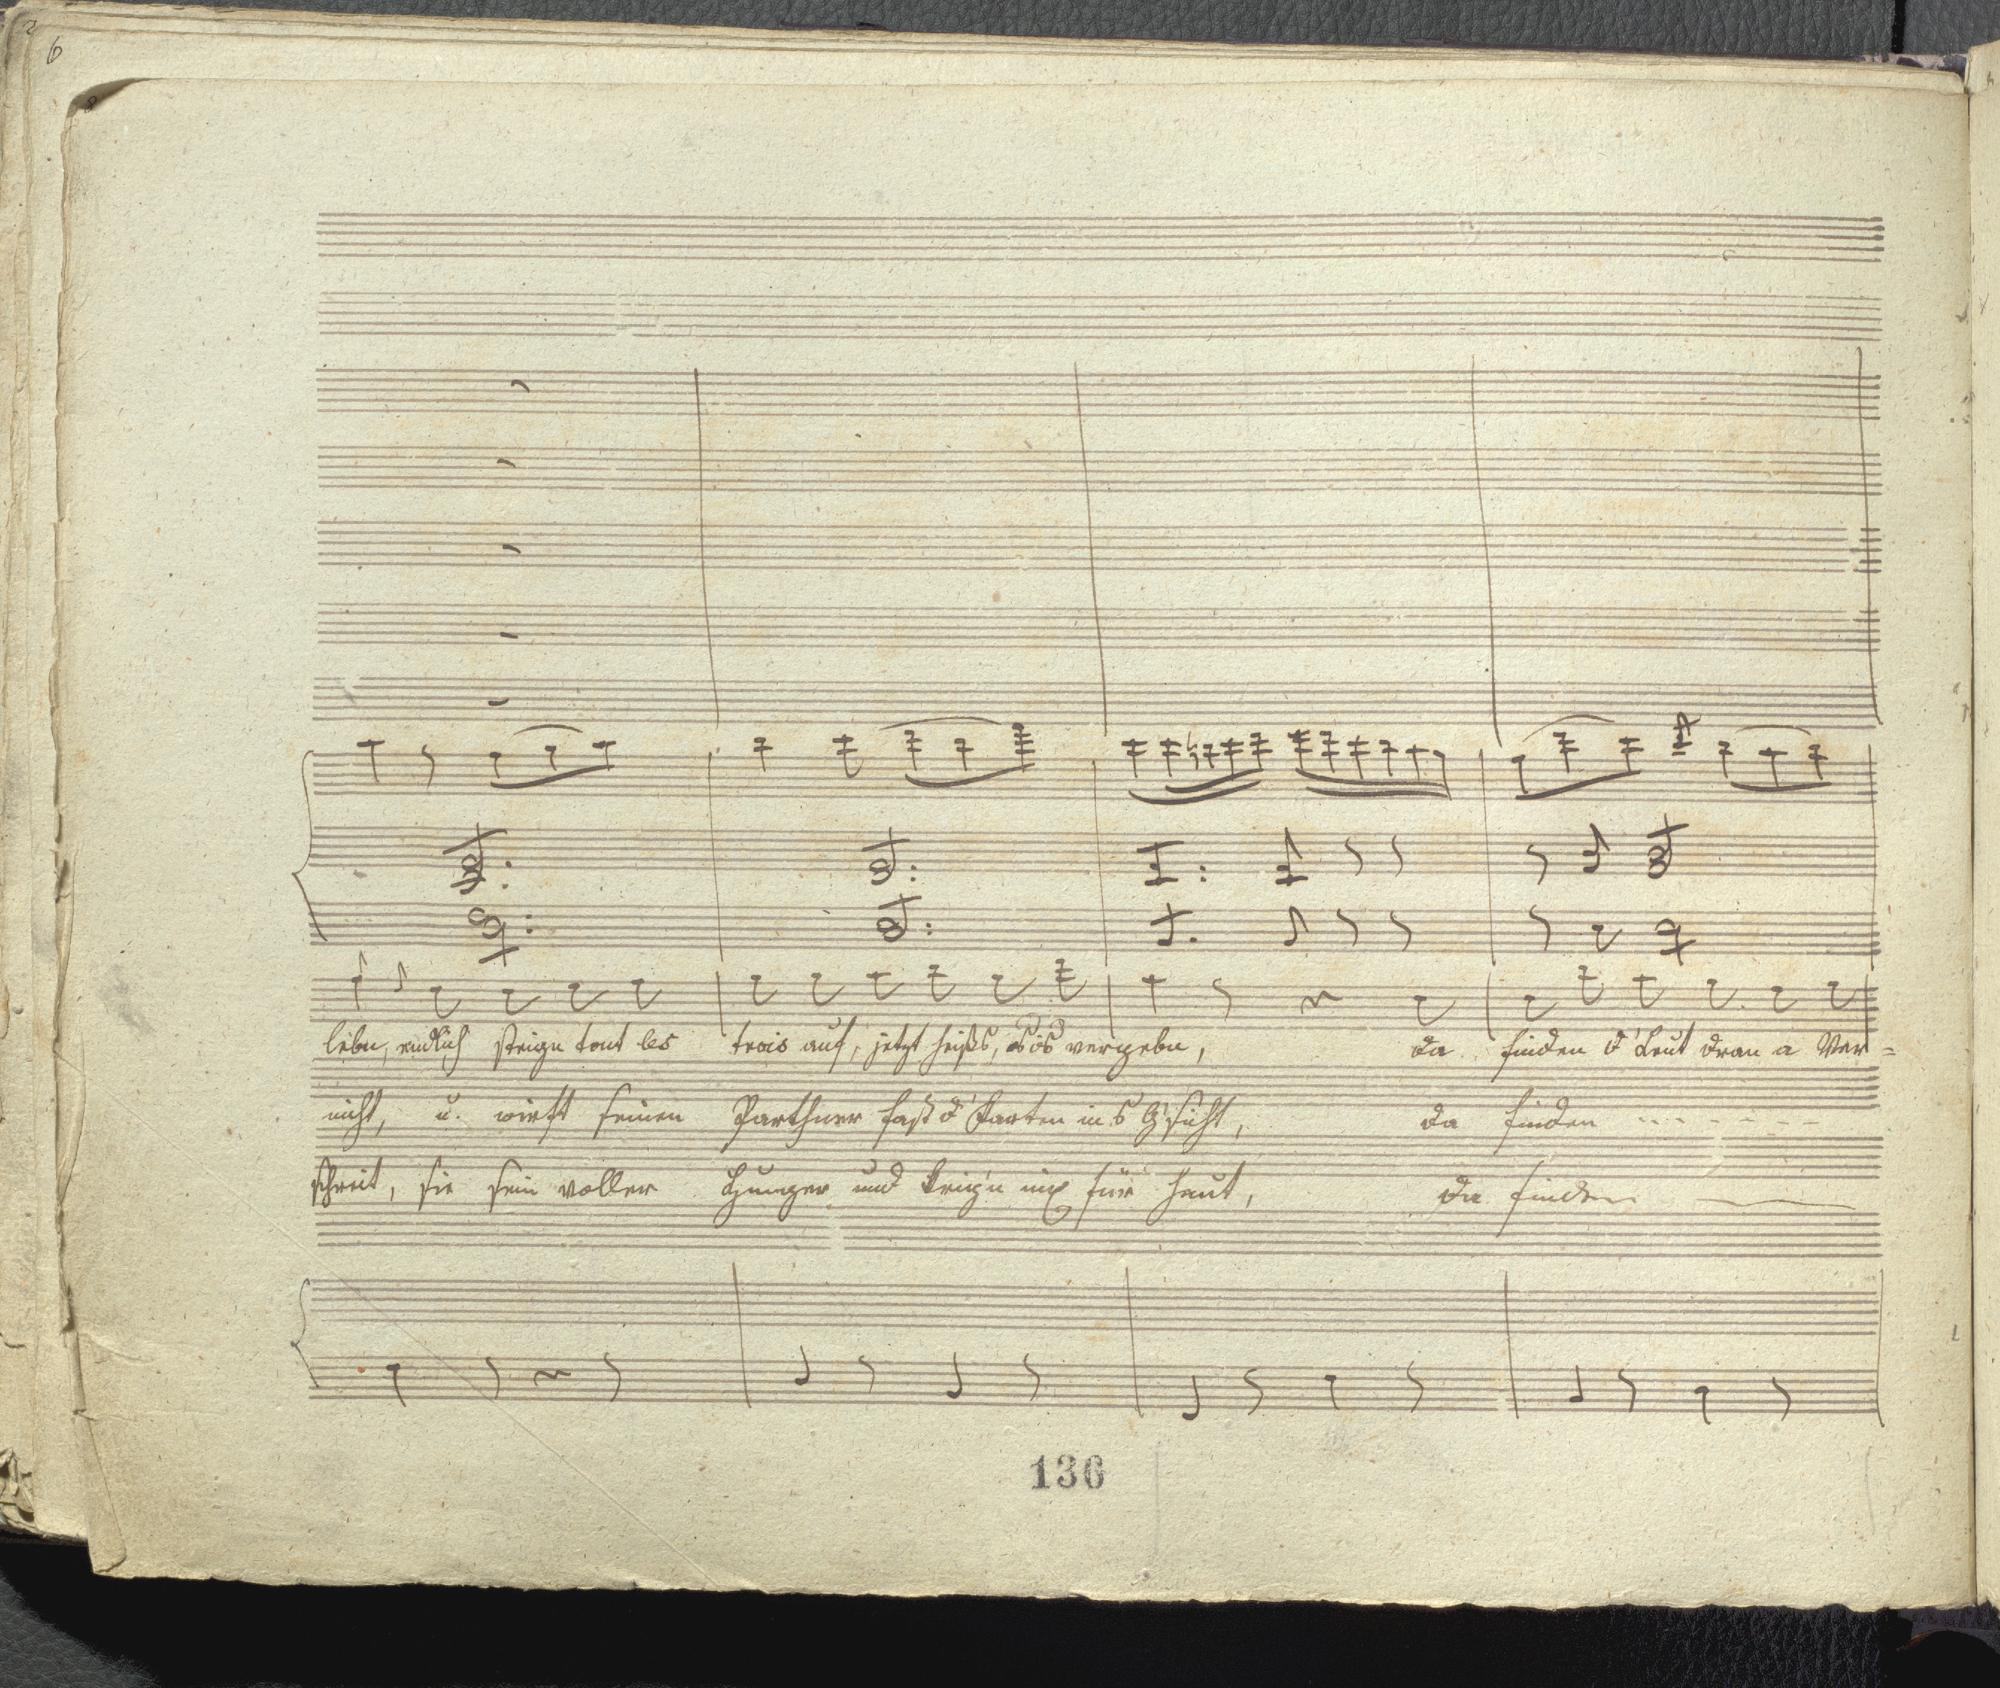 2
6
8
lebn, endlich steign tout les trois auf, jetzt heißts, es is vergebn, da finden d' Leut dran a Ver=
nicht, u. wirft seinen Parthner fast d' Karten in's G'sicht, da finden - - - - - -
schreit, sie sein voller Hunger und krieg'n nix für heut, da finden
136